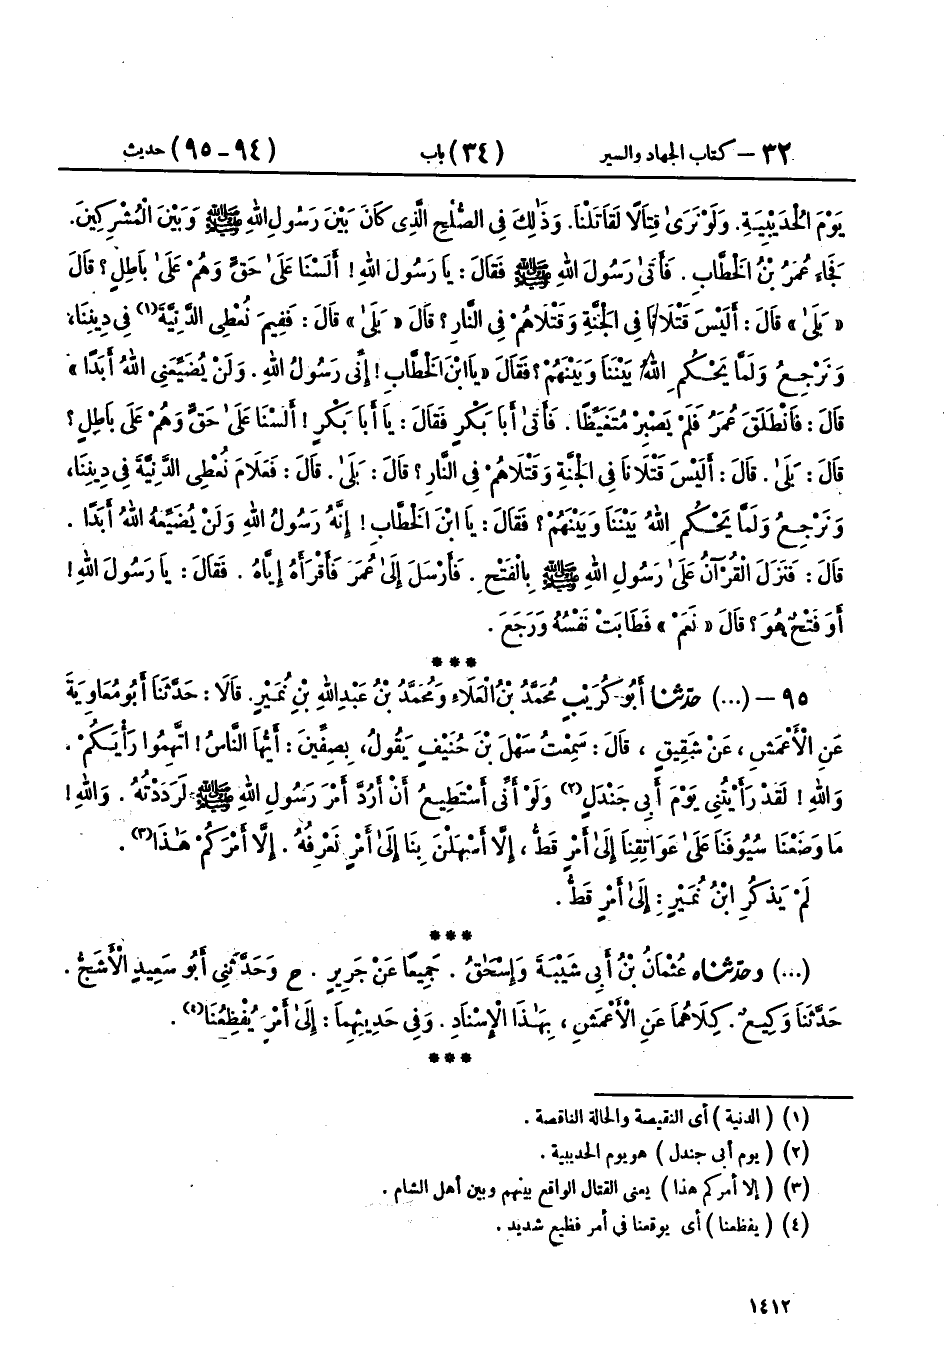 ٣٢ – كتاب الجهاد والسير (٣٤) باب (٩٤ – ٩٥) حديث
يَوْمَ الْحُدَيْبِيَةِ. وَلَوْ نَرَىٰ قِتَالًا لَقَاتَلْنَا. وَذَٰلِكَ فِي الصُّلْحِ الَّذِي كَانَ بَيْنَ رَسُولِ اللهِ ﷺ وَبَيْنَ الْمُشْرِكِينَ.
فَجَاءَ عُمَرُ بْنُ الْخَطَّابِ. فَأَتَىٰ رَسُولَ اللهِ ﷺ فَقَالَ: يَا رَسُولَ اللهِ! أَلَسْنَا عَلَىٰ حَقٍّ وَهُمْ عَلَىٰ بَاطِلٍ؟ قَالَ
« بَلَىٰ » قَالَ: أَلَيْسَ قَتْلَانَا فِي الْجَنَّةِ وَقَتْلَاهُمْ فِي النَّارِ؟ قَالَ « بَلَىٰ » قَالَ: فَفِيمَ نُعْطِي الدَّنِيَّةَ(١) فِي دِينِنَا،
وَنَرْجِعُ وَلَمَّا يَحْكُمِ اللهُ بَيْنَنَا وَبَيْنَهُمْ؟ فَقَالَ « يَا ابْنَ الْخَطَّابِ! إِنِّي رَسُولُ اللهِ. وَلَنْ يُضَيِّعَنِي اللهُ أَبَدًا »
قَالَ: فَانْطَلَقَ عُمَرُ فَلَمْ يَصْبِرْ مُتَغَيِّظًا. فَأَتَىٰ أَبَا بَكْرٍ فَقَالَ: يَا أَبَا بَكْرٍ! أَلَسْنَا عَلَىٰ حَقٍّ وَهُمْ عَلَى بَاطِلٍ؟
قَالَ: بَلَىٰ. قَالَ: أَلَيْسَ قَتْلَانَا فِي الْجَنَّةِ وَقَتْلَاهُمْ فِي النَّارِ؟ قَالَ: بَلَىٰ. قَالَ: فَعَلَامَ نُعْطِي الدَّنِيَّةَ فِي دِينِنَا،
وَنَرْجِعُ وَلَمَّا يَحْكُمِ اللهُ بَيْنَنَا وَبَيْنَهُمْ؟ فَقَالَ: يَا ابْنَ الْخَطَّابِ! إِنَّهُ رَسُولُ اللهِ وَلَنْ يُضَيِّعَهُ اللهُ أَبَدًا.
قَالَ: فَنَزَلَ الْقُرْآنُ عَلَىٰ رَسُولِ اللهِ ﷺ بِالْفَتْحِ. فَأَرْسَلَ إِلَىٰ عُمَرَ فَأَقْرَأَهُ إِيَّاهُ. فَقَالَ: يَا رَسُولَ اللهِ!
أَوَ فَتْحٌ هُوَ؟ قَالَ « نَعَمْ » فَطَابَتْ نَفْسُهُ وَرَجَعَ.
***
٩٥ – (...) حَدَّثَنَا أَبُو كُرَيْبٍ مُحَمَّدُ بْنُ الْعَلَاءِ وَمُحَمَّدُ بْنُ عَبْدِ اللهِ بْنِ نُمَيْرٍ. قَالَا: حَدَّثَنَا أَبُو مُعَاوِيَةَ
عَنِ الْأَعْمَشِ، عَنْ شَقِيقٍ، قَالَ: سَمِعْتُ سَهْلَ بْنَ حُنَيْفٍ يَقُولُ، بِصِفِّينَ: أَيُّهَا النَّاسُ! اتَّهِمُوا رَأْيَكُمْ.
وَاللهِ! لَقَدْ رَأَيْتُنِي يَوْمَ أَبِي جَنْدَلٍ(٢) وَلَوْ أَنِّي أَسْتَطِيعُ أَنْ أَرُدَّ أَمْرَ رَسُولِ اللهِ ﷺ لَرَدَدْتُهُ. وَاللهِ!
مَا وَضَعْنَا سُيُوفَنَا عَلَىٰ عَوَاتِقِنَا إِلَىٰ أَمْرٍ قَطُّ، إِلَّا أَسْهَلْنَ بِنَا إِلَىٰ أَمْرٍ نَعْرِفُهُ. إِلَّا أَمْرَكُمْ هَٰذَا(٣).
لَمْ يَذْكُرِ ابْنُ نُمَيْرٍ: إِلَىٰ أَمْرٍ قَطُّ.
***
(...) وَحَدَّثَنَاهُ عُثْمَانُ بْنُ أَبِي شَيْبَةَ وَإِسْحَٰقُ. جَمِيعًا عَنْ جَرِيرٍ. ح وَحَدَّثَنِي أَبُو سَعِيدٍ الْأَشَجُّ.
حَدَّثَنَا وَكِيعٌ. كِلَاهُمَا عَنِ الْأَعْمَشِ، بِهَٰذَا الْإِسْنَادِ. وَفِي حَدِيثِهِمَا: إِلَىٰ أَمْرٍ يُفْظِعُنَا(٤).
***
(١) ( الدنية ) أى النقيصة والحالة الناقصة.
(٢) ( يوم أبى جندل ) هو يوم الحديبية.
(٣) ( إلا أمركم هذا ) يعنى القتال الواقع بينهم وبين أهل الشام.
(٤) ( يفظعنا ) أى يوقعنا في أمر فظيع شديد.
١٤١٢